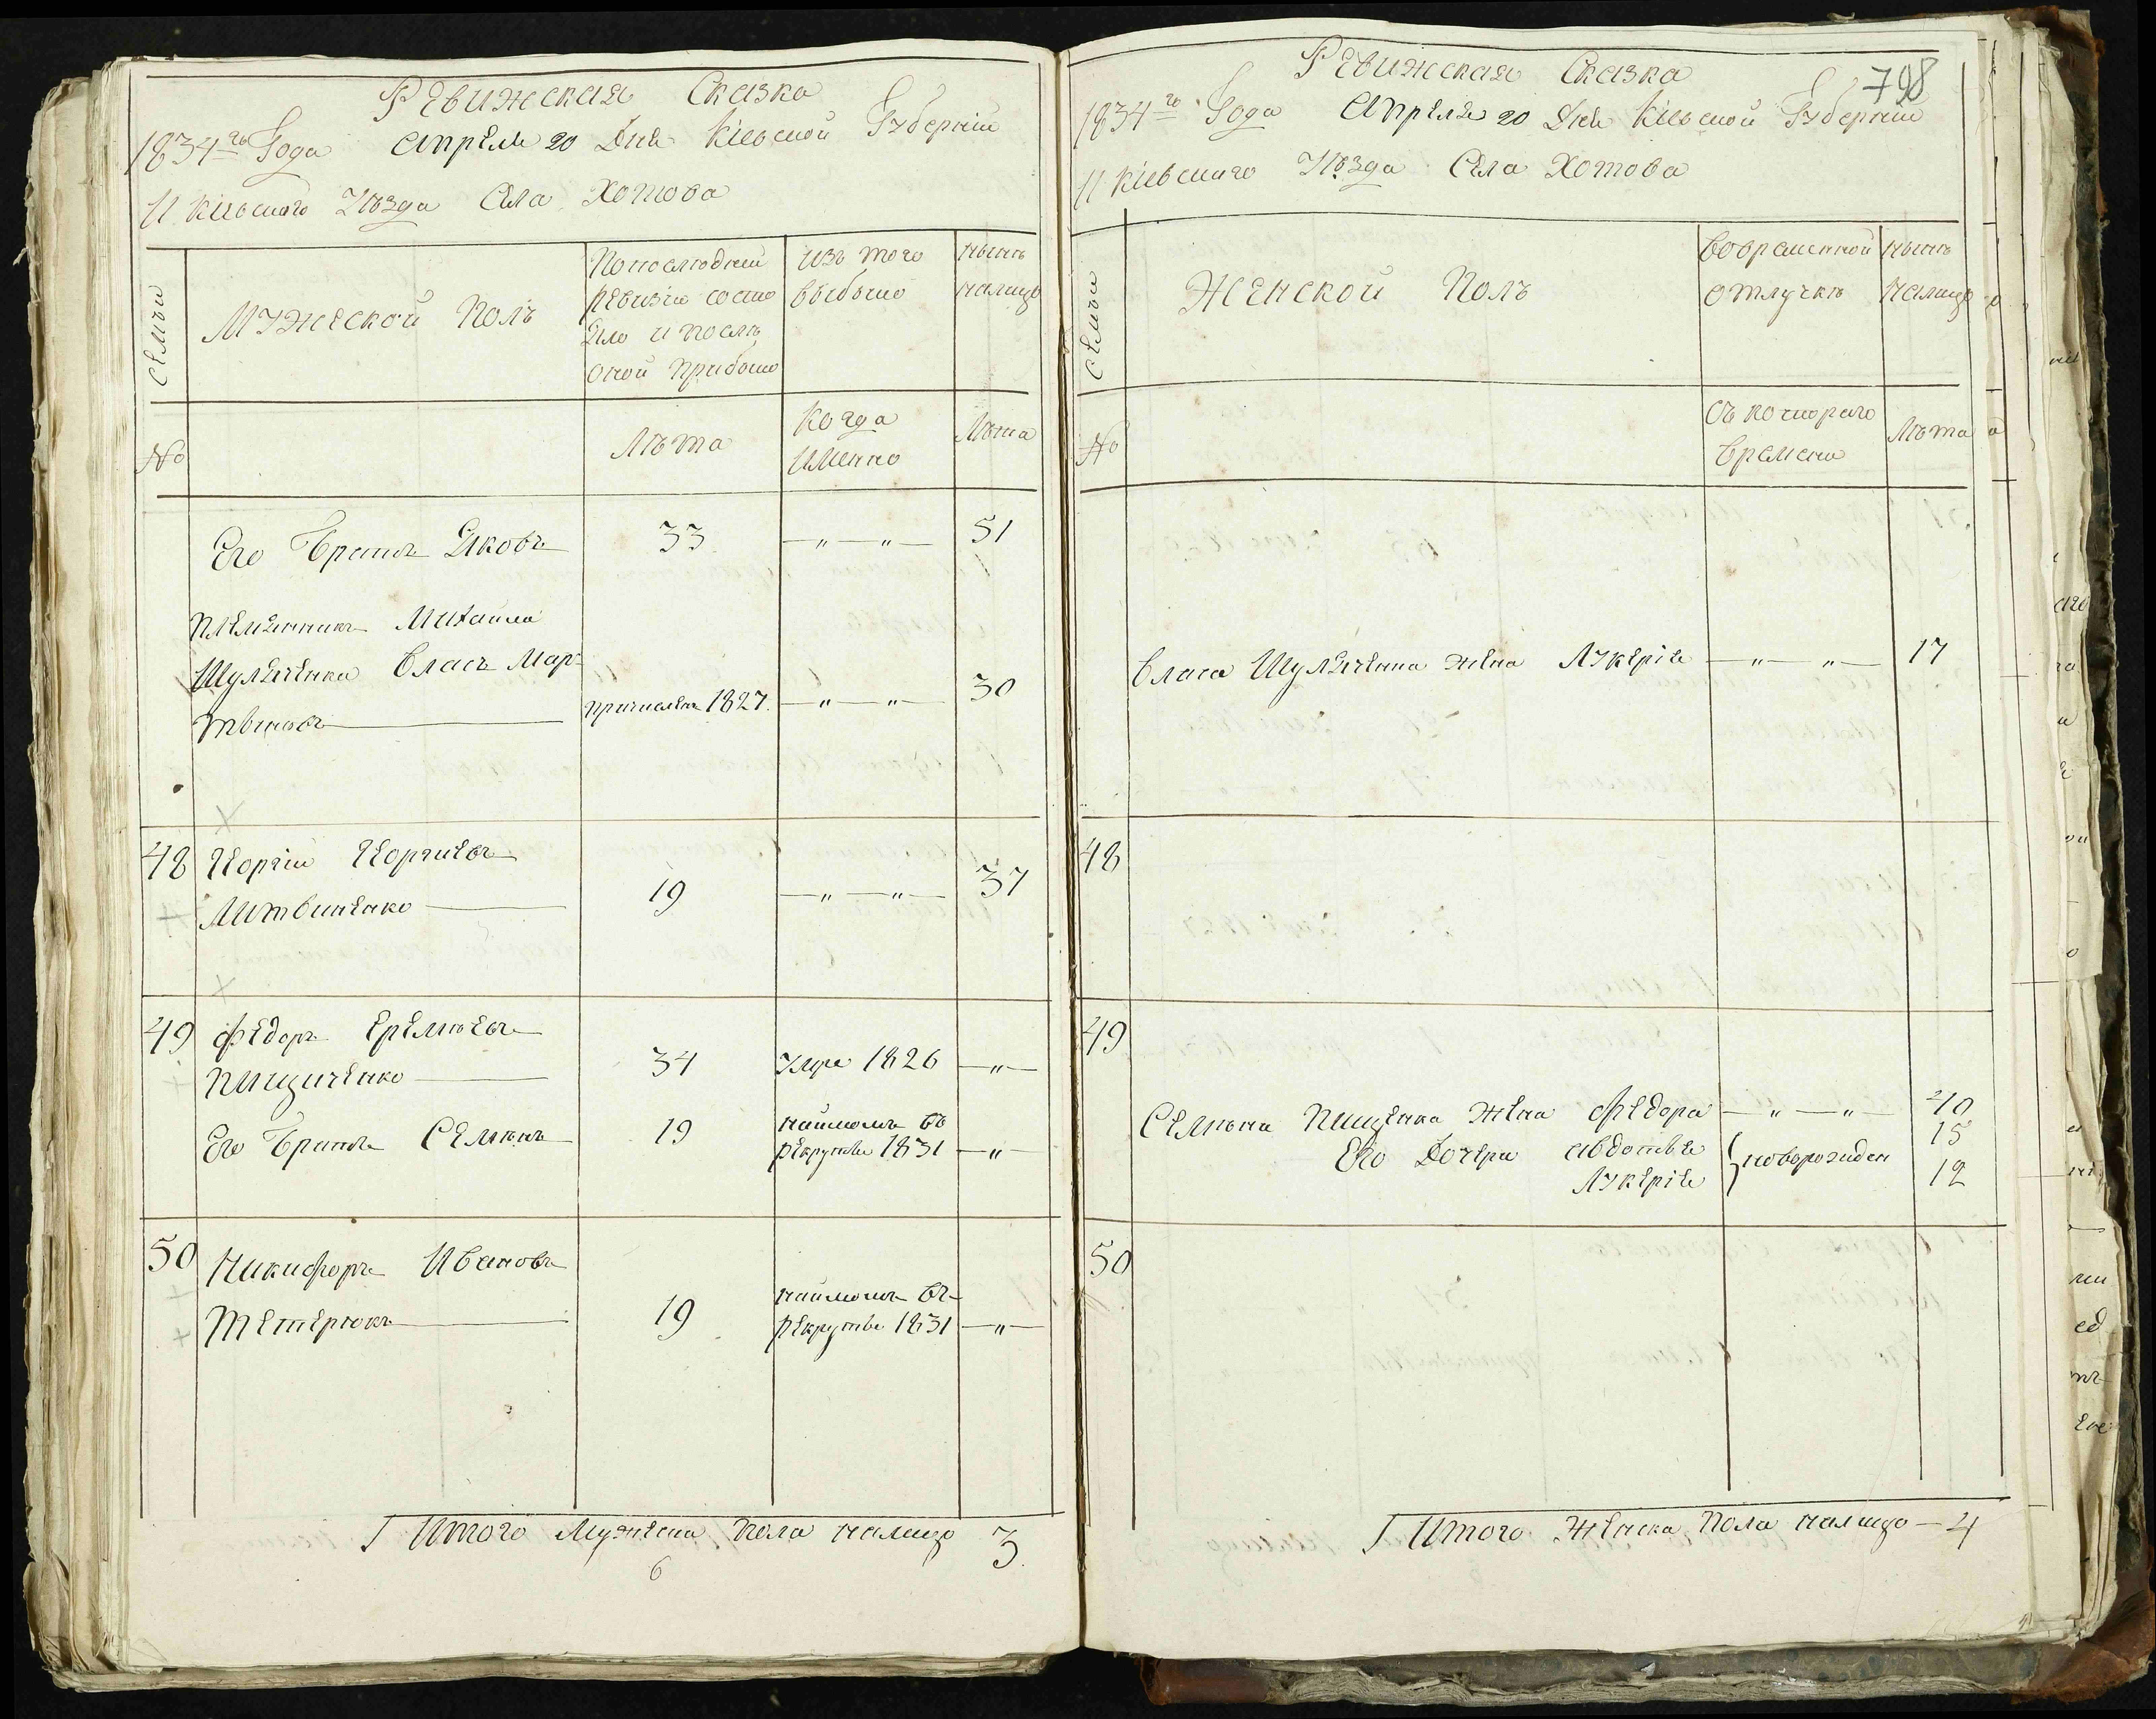 Ревижская Сказка
1834го Года Апреля 20 Дня Кіевской Губерніи
И Кіевского Уѣзда Села Хотова
Семьи
Мужеской Полъ
По последней ревизіи состо яло и послѣ оной прибыло
изъ того выбыло
нынѣ налицо
№
Лѣта
Когда именно
Лѣта
Его Братъ Яковъ 33 —〃—〃— 51
племянникъ Михайла
Шуляченка Власъ Мар-
тыновъ причисленъ 1827. —〃—〃— 30
48 Георгій Георгиевъ
Литвиненко 19 —〃—〃— 37
49 Федоръ Еремѣевъ
Пищиченко 34 Умре 1826 —〃—
Его Братъ Семенъ 19 наймомъ въ рекруты 1831 —〃—
50 Никифоръ Ивановъ
Тетерюкъ 19 наймомъ въ рекруты 1831 —〃—
Итого Мужеска пола налицо 3.
6
798
Ревижская Сказка
1834го Года Апреля 20 Дня Кіевской Губерніи
И Кіевскаго Уѣзда Села Хотова
Семьи
Женской Полъ
Вовременной отлучкѣ
нынѣ налицо
№
Съ котораго времени
Лѣта
Власа Шуляченка жена Лукерія —〃—〃— 17
48
49
Семена Пищенка жена Федора —〃—〃— 40
Его Дочери Авдотья 15
новорожден
Лукерія 12
50
Итого Женска Пола налицо — 4